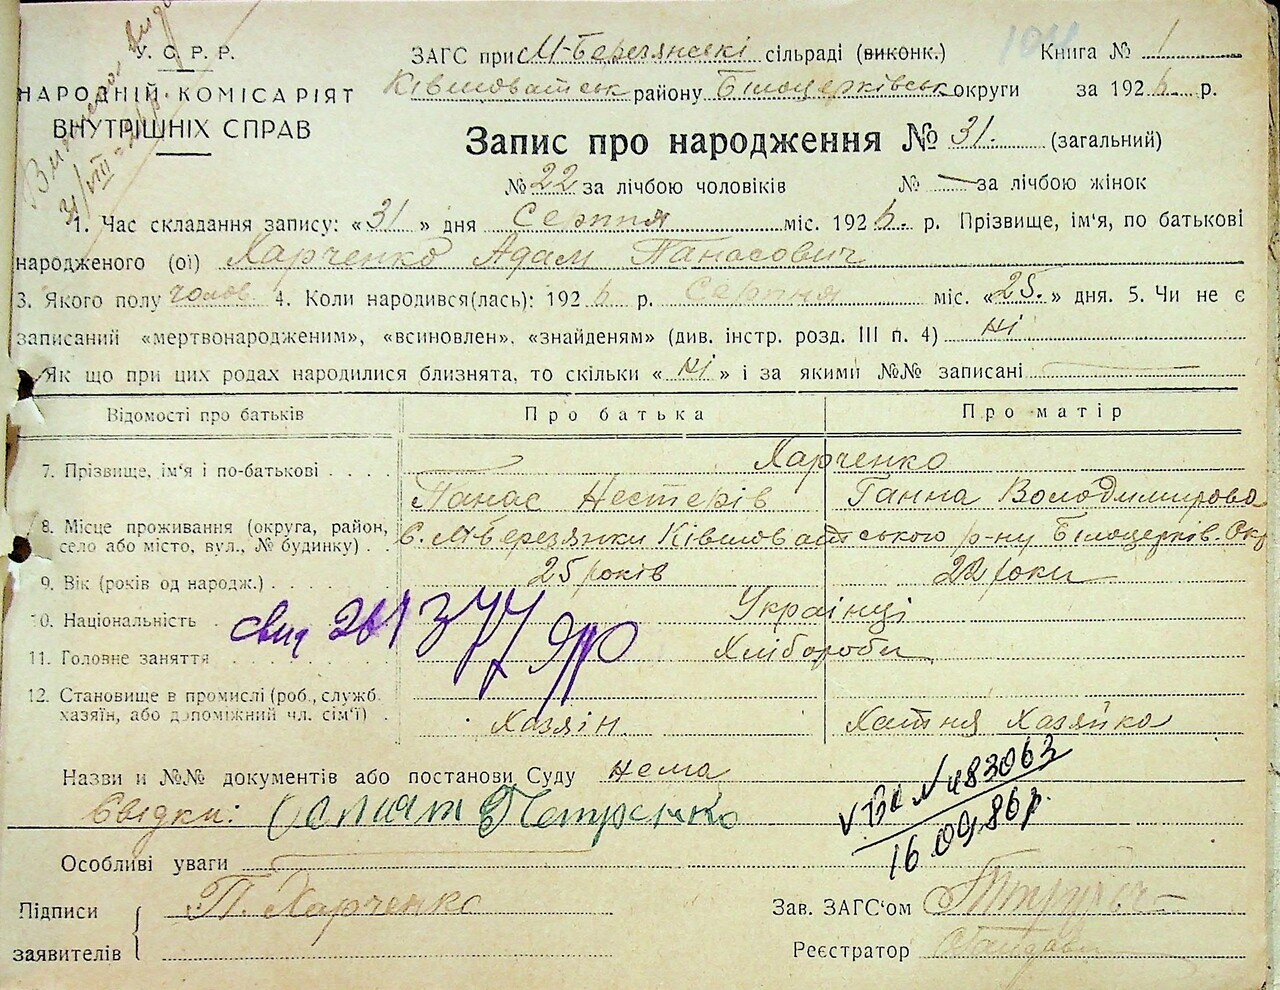 У.С.Р.Р.
НАРОДНІЙ КОМІСАРІЯТ
ВНУТРІШНІХ СПРАВ
31/VIII-26 р.
104
ЗАГС при М-Березянскі сільраді (виконк.) Книга № 1
Ківшоватськ району Білоцерківськ округи за 1926 р.
Запис про народження № 31. (загальний)
№ 22 за лічбою чоловіків № — за лічбою жінок
1. Час складання запису: «31» дня Серпня міс. 1926. р. Прізвище, ім'я, по батькові
народженого (ої) Харченко Адам Панасович
3. Якого полу чолов 4. Коли народився(лась): 1926 р. Серпня міс. «25.» дня. 5. Чи не є
записаний «мертвонародженим», «всиновлен», «знайденям» (див. інстр. розд. III п. 4) ні
Як що при цих родах народилися близнята, то скільки «ні» і за якими №№ записані —
Відомості про батьків Про батька Про матір
7. Прізвище, ім'я і по-батькові Харченко
Панас Нестерів Ганна Володимирова
8. Місце проживання (округа, район,
село або місто, вул., № будинку) с. М-Березянки Ківшоватського р-ну Білоцерків. Окр
9. Вік (років од народж.) 25 років 22 роки
10. Національність Українці
11. Головне заняття Хлібороби
12. Становище в промислі (роб., служб.
хазяїн, або допоміжний чл. сім'ї) Хазяін. Хатня Хазяйка
Назви и №№ документів або постанови Суду нема
Свідки: Петренко
№ 483063
16.09.86 р.
Особливі уваги
Підписи
заявителів
П. Харченко
Зав. ЗАГС'ом
Реєстратор